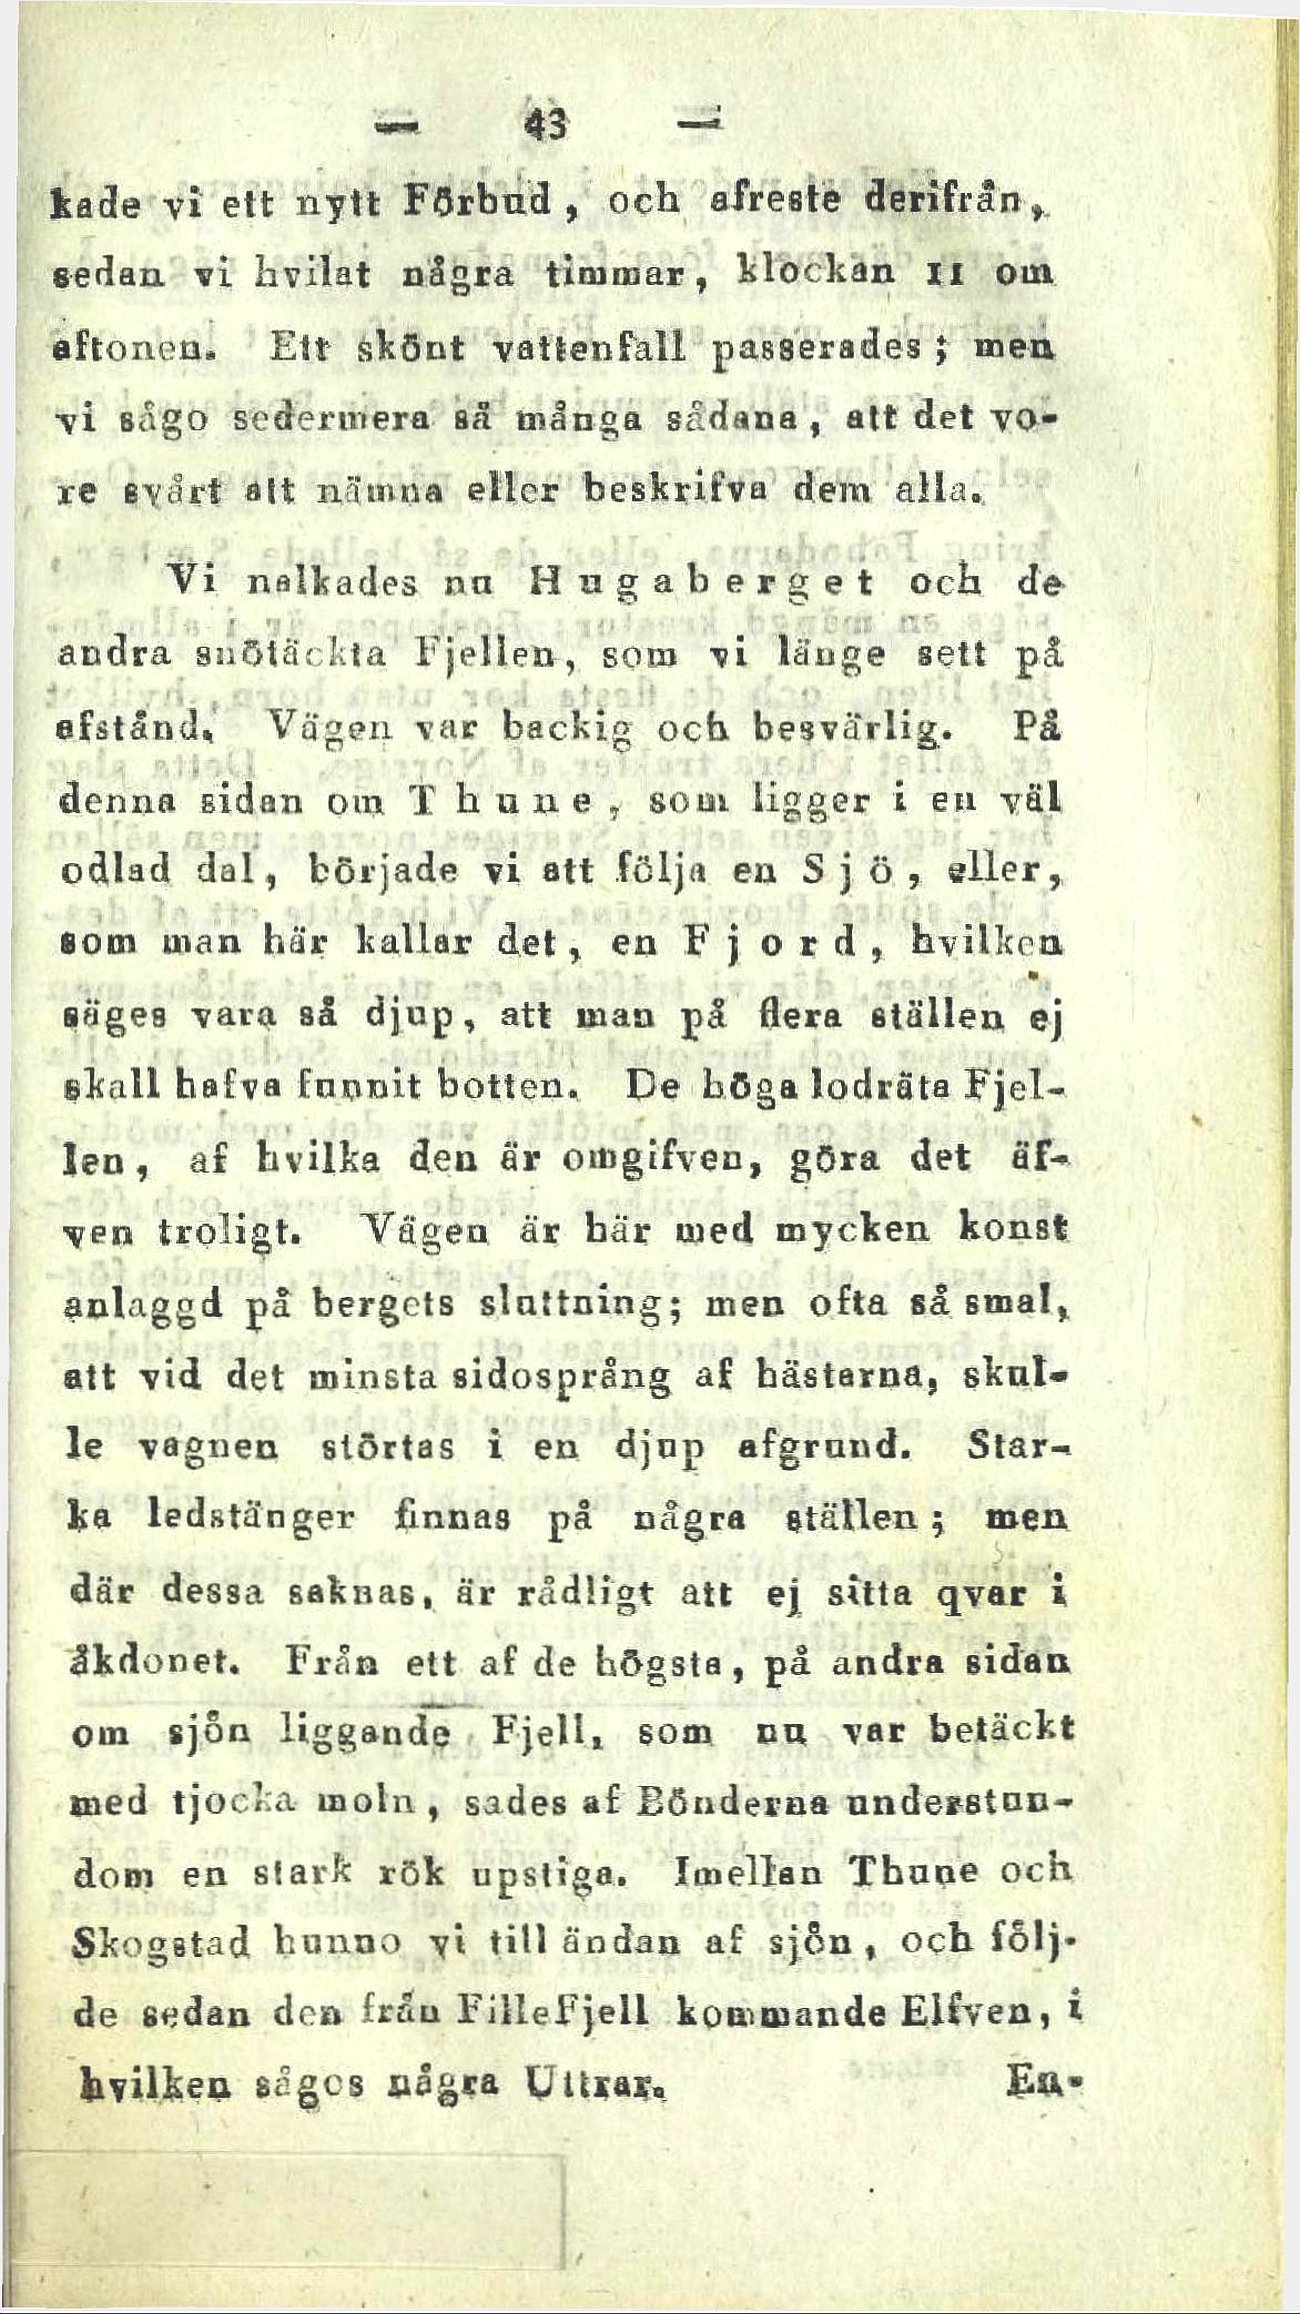 — 43 —
kade vi ett nytt Förbud, och afreste derifrån,
sedan vi hvilat några timmar, klockan 11 om
aftonen. Ett skönt vattenfall passerades; men
vi sågo sedermera så många sådana, att det vo-
re svårt att nämna eller beskrifva dem alla.
Vi nalkades nu Hugaberget och de
andra snötäckta Fjellen, som vi länge sett på
afstånd. Vägen var backig och besvärlig. På
denna sidan om Thune, som ligger i en väl
odlad dal, började vi att följa en Sjö, eller,
som man här kallar det, en Fjord, hvilken
säges vara så djup, att man på flera ställen ej
skall hafva funnit botten. De höga lodräta Fjel-
len, af hvilka den är omgifven, göra det äf-
ven troligt. Vägen är här med mycken konst
anlaggd på bergets sluttning; men ofta så smal,
att vid det minsta sidosprång af hästarna, skul-
le vagnen störtas i en djup afgrund. Star-
ka ledstänger finnas på några ställen; men
där dessa saknas, är rådligt att ej sitta qvar i
åkdonet. Från ett af de högsta, på andra sidan
om sjön liggande Fjell, som nu var betäckt
med tjocka moln, sades af Bönderna understun-
dom en stark rök upstiga. Imellan Thune och
Skogstad hunno vi till ändan af sjön, och följ-
de sedan den från FilleFjell kommande Elfven, i
hvilken sågos några Uttrar. En-